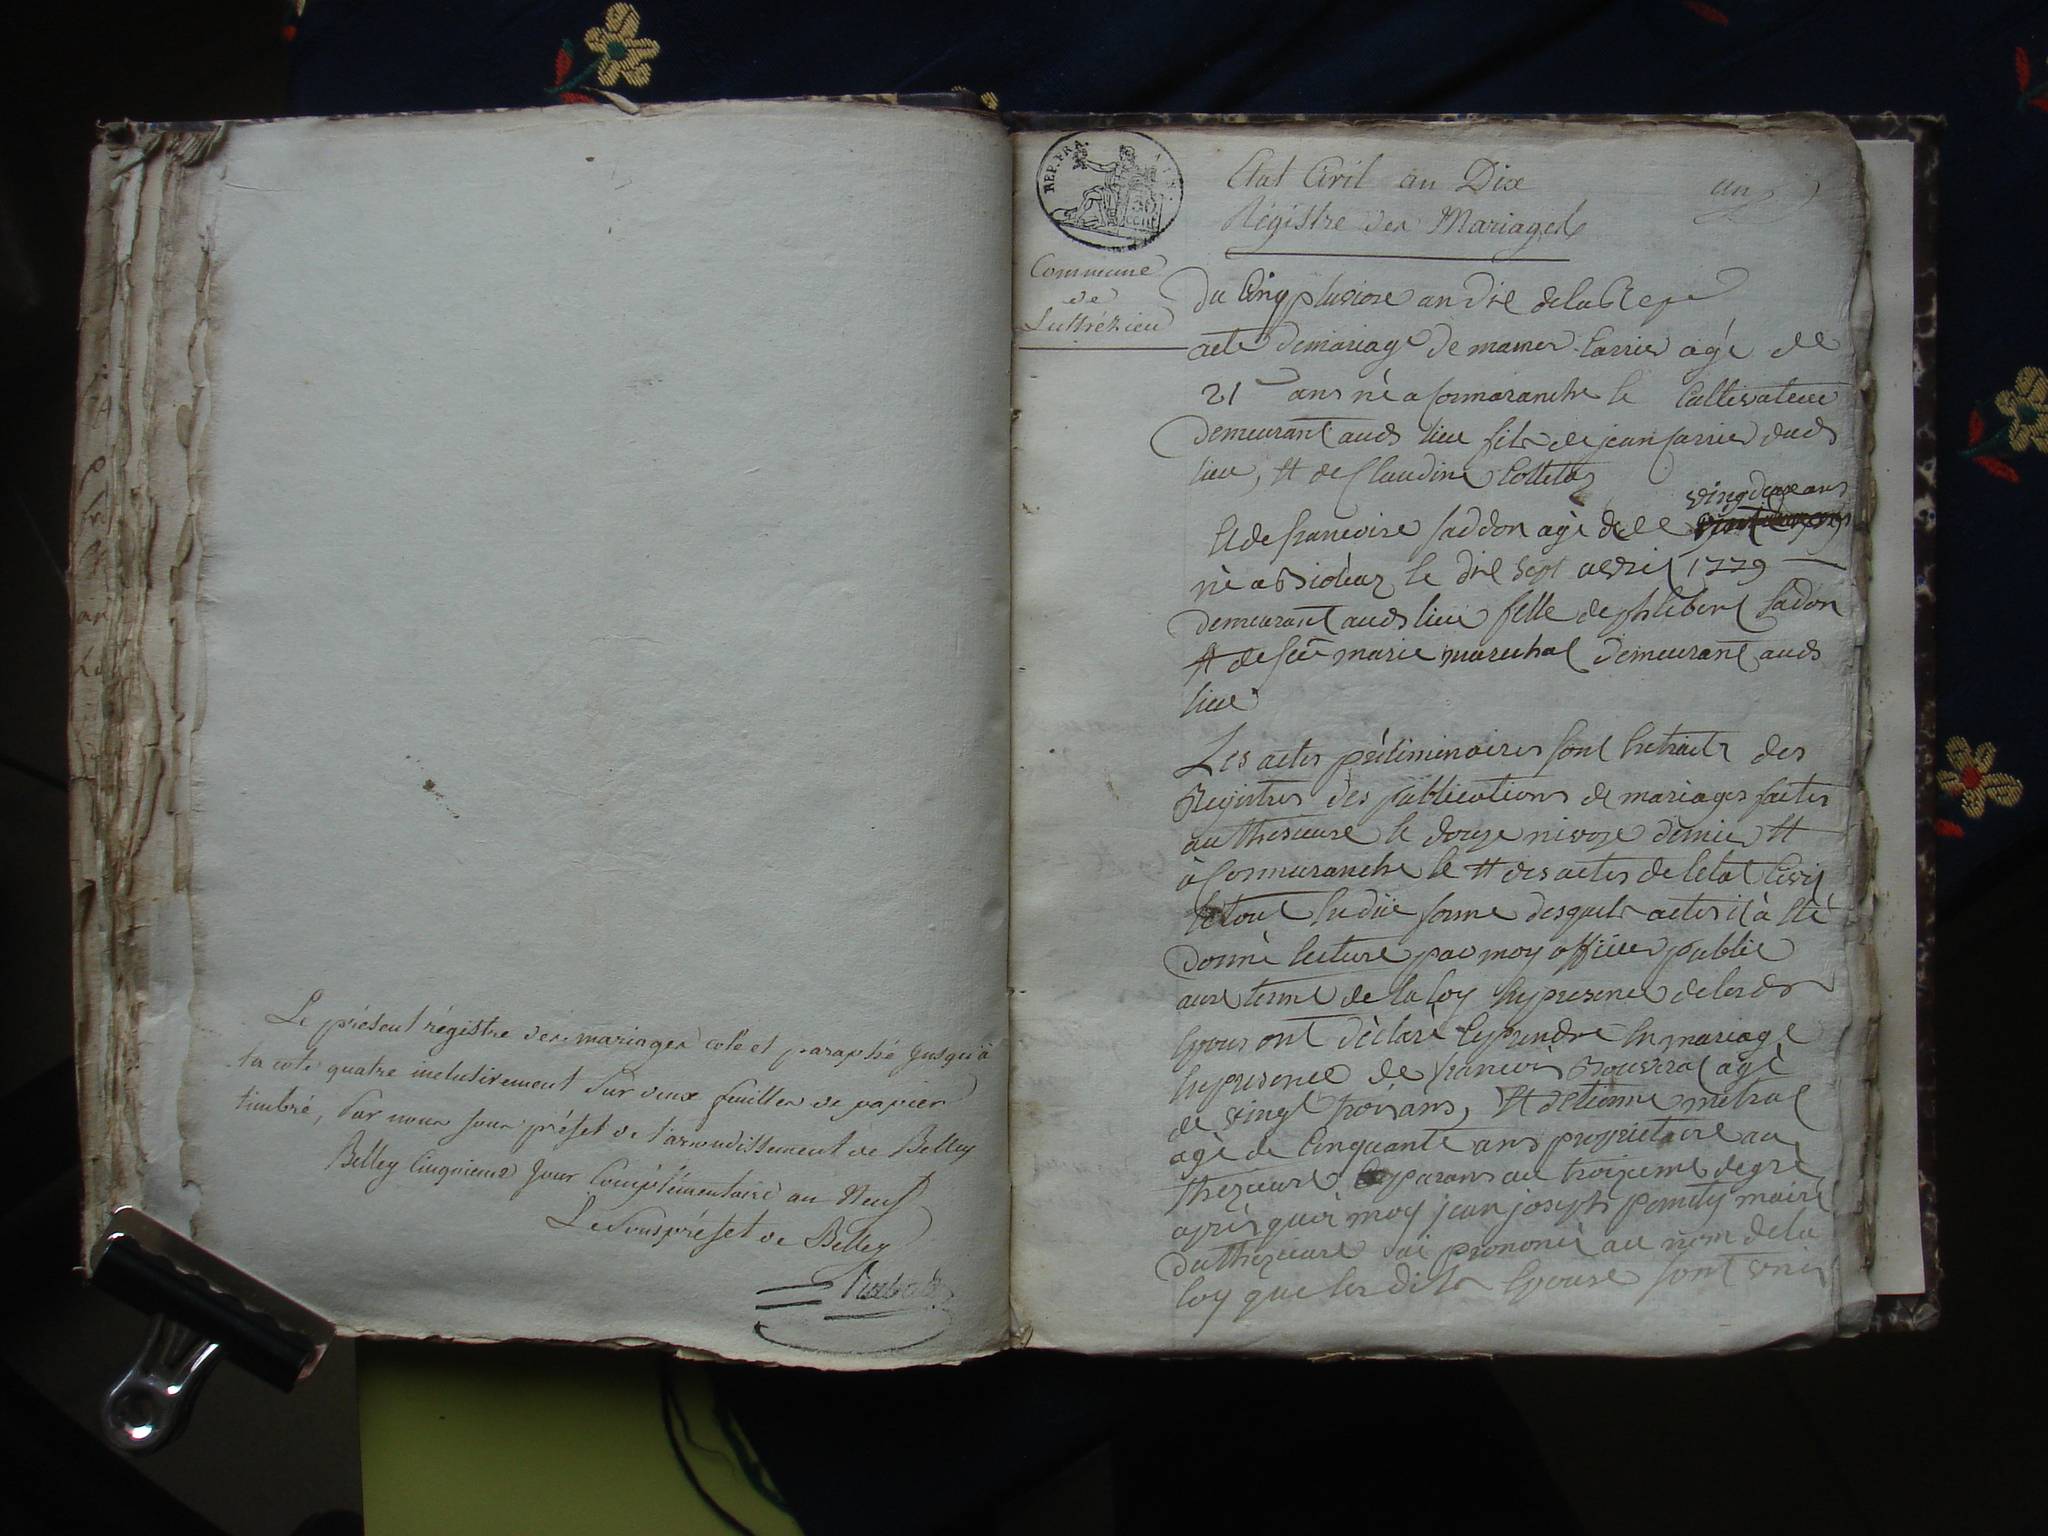 Le présent régistre des mariages coté et paraphé jusqu'à
la cote quatre inclusivement sur deux feuilles de papier
timbré, par nous sous préfet de l'arrondissement de Belley
Belley Cinquieme Jour Complémentaire an Neuf
Le Souspréfet de Belley
REP. FRA.
Etat Civil an Dix
un
Régistre des Mariages
Commune
de
Luthézieu
Du Cinq pluviose an dix de la Rep
acte de mariage de mamer Carrier agé de
21 ans né a Cormaranche le Cultivateur
demeurant aud lieu fils de jean Carrier dud
lieu, et de Claudine
vingdeux ans
Et de francoise Saddon agé de
né a le dix sept avril 1779
demeurant aud lieu fille de philibert Sadon
et de feu marie marechal demeurant aud
lieu
Les actes préliminaires sont Extraits des
Registres des publications de mariages faites
au le douze nivose dernier et
à Cormaranche le et des actes de letat Civil
le tout En due forme desquels actes il à Eté
donné lecture par moy officier public
aux terme de la loy En presence
Epoux ont déclaré se prendre En mariage
En presence de francois agé
de vingt trois ans, et detienne metral
agé de Cinquante ans proprietaire au
parans au troizieme degré
après quoi moy jean joseph maire
ai prononcé au nom de la
loy que les dits Epoux sont unis